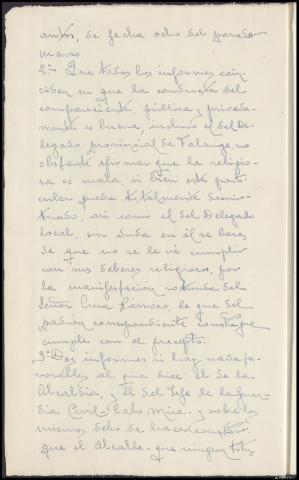 autos, de fecha ocho del pasado
marzo.
2º.- Que todos los informes coin-
ciden en que la conducta del
compareciente, pública y privada-
mente es buena, incluso el del De-
legado provincial de Falange, no
obstante afirmar que la religio-
sa es mala, si bien este parti-
cular queda totalmente desvir-
tuado, así como el del Delegado
local, sin duda en él se basa,
de que no se le vé cumplir
con sus deberes religiosos, por
la manifestación rotunda del
Señor Cura Párroco, de que del
padrón correspondiente
cumple con el precepto.
3º. Dos informes ni hay nada fa-
vorables al que dice: El de la
Alcaldía, y El del Jefe de la Guar-
dia Civil = Cabo Mira - y sobre los
mismos debo de hacer constar:
que el Alcalde - que ningún